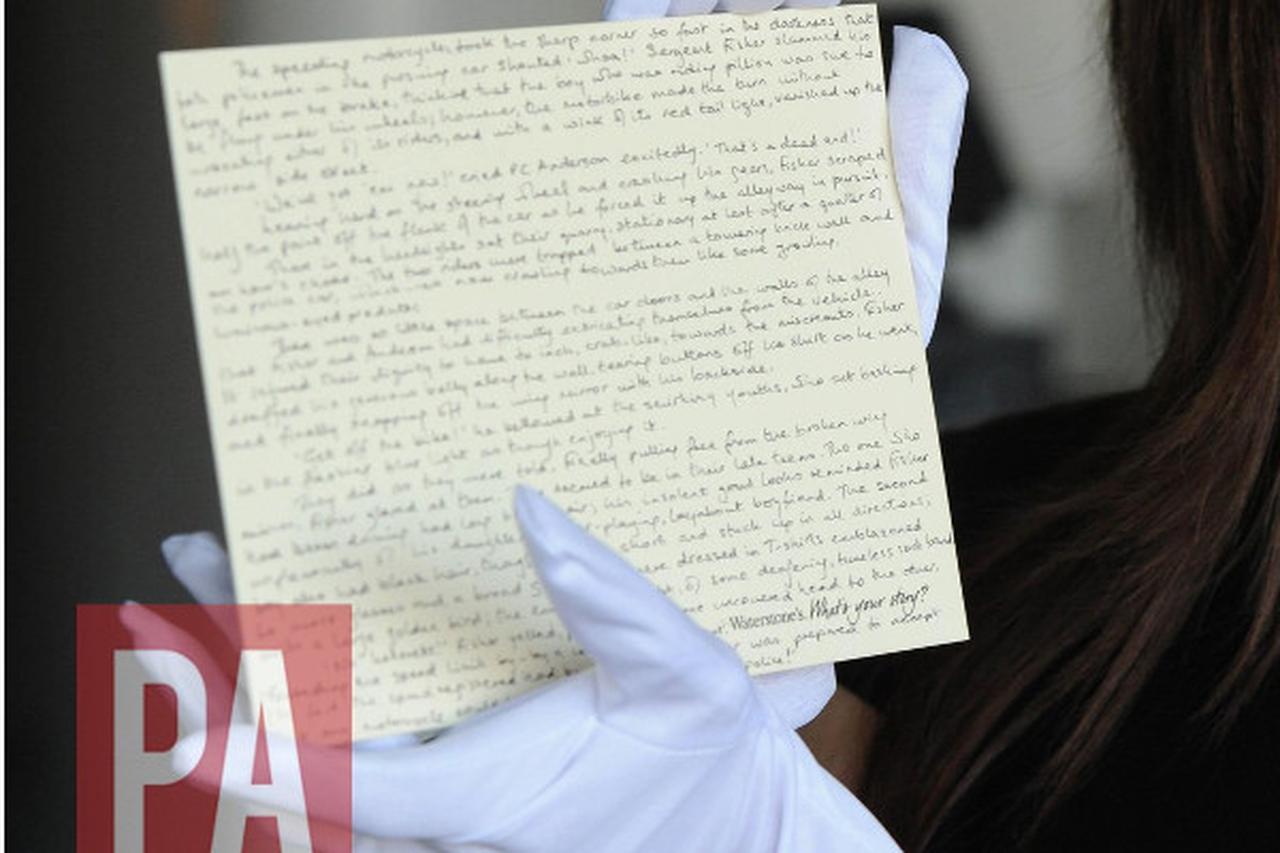 The speeding motorcycle took the sharp corner so fast in the darkness that
both policemen in the pursuing car shouted 'Whoa!' Sergeant Fisher slammed his
large foot on the brake, thinking that the boy who was riding pillion was sure to
be flung under his wheels; however, the motorbike made the turn without
unseating either of its riders, and with a wink of its red tail light, vanished up the
narrow side street.
'We've got 'em now!' cried PC Anderson excitedly. 'That's a dead end!'
Leaning hard on the steering wheel and crashing his gears, Fisher scraped
half the paint off the flank of the car as he forced it up the alleyway in pursuit.
There in the headlights sat their quarry, stationary at last after a quarter of
an hour's chase. The two riders were trapped between a towering brick wall and
the police car, which was now crawling towards them like some growling,
luminous-eyed predator.
There was so little space between the car doors and the walls of the alley
that Fisher and Anderson had difficulty extricating themselves from the vehicle.
It injured their dignity to have to inch, crab-like, towards the miscreants. Fisher
dragged his generous belly along the wall, tearing buttons off his shirt as he went,
and finally snapping off the wing mirror with his backside.
'Get off the bike!' he bellowed at the smirking youths, who sat basking
in the flashing blue light as though enjoying it.
They did as they were told. Finally pulling free from the broken wing
mirror, Fisher glared at them. seemed to be in their late teens. The one who
had been driving had long his insolent good looks reminded Fisher
unpleasantly of his daughter's playing, layabout boyfriend. The second
boy also had black hair, though short and stuck up in all directions;
he wore glasses and a broad were dressed in T-shirts emblazoned
with a large golden bird; the of some deafening, tuneless rock band.
'No helmets!' Fisher yelled, one uncovered head to the other.
Waterstone's. What's your story?
speed limit by - by a was prepared to accept
police!'
PA